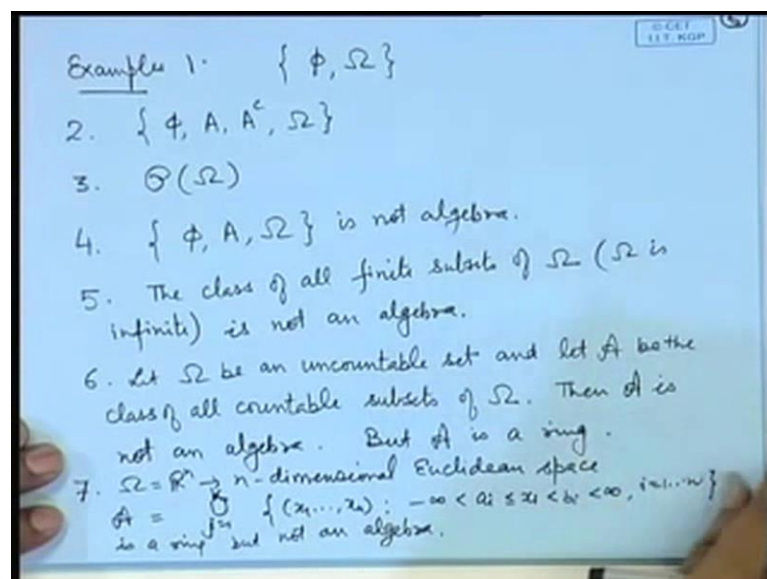 © CET
I.I.T. KGP
Examples 1. { φ, Ω }
2. { φ, A, A^c, Ω }
3. P(Ω)
4. { φ, A, Ω } is not algebra.
5. The class of all finite subsets of Ω (Ω is
infinite) is not an algebra.
6. Let Ω be an uncountable set and let A be the
class of all countable subsets of Ω. Then A is
not an algebra. But A is a ring.
7. Ω = R^n → n-dimensional Euclidean space
A = ∪_{j=1}^{k} { (x_1, ..., x_n) : -∞ < a_i ≤ x_i < b_i < ∞, i=1...n }
is a ring but not an algebra.